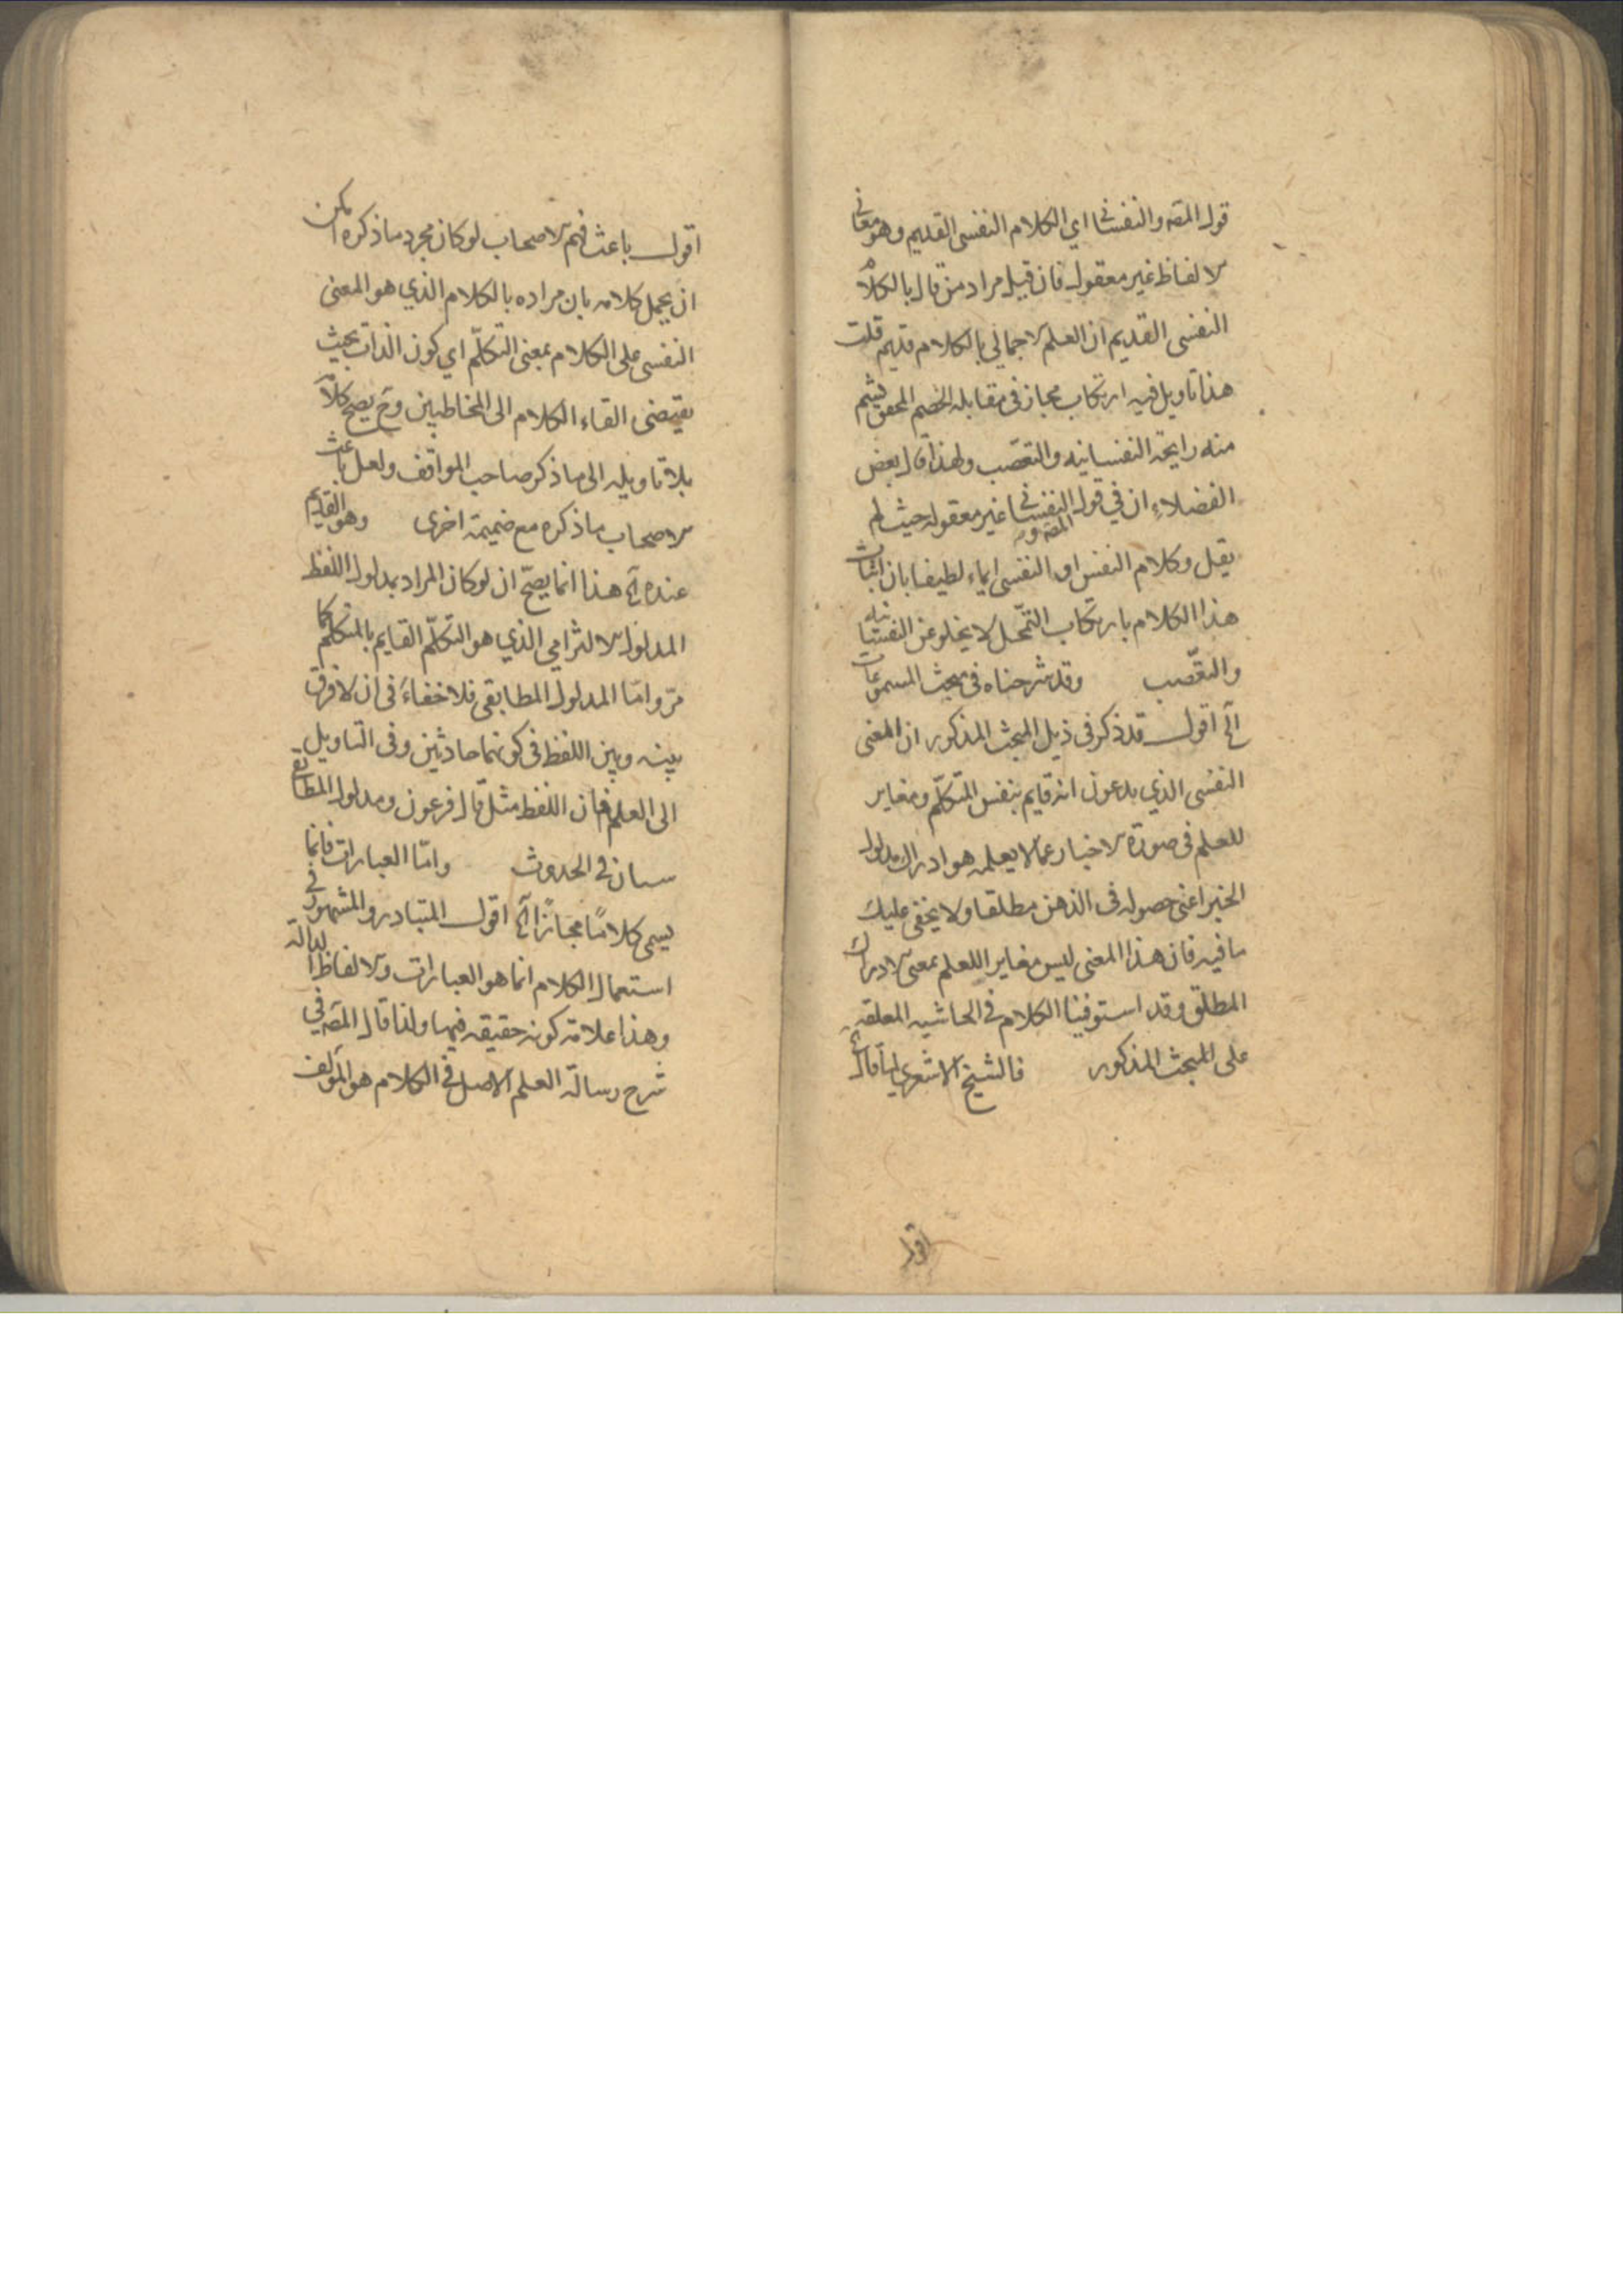 قوله المصه والنفساني اي الكلام النفسي القديم وهو معاني
الالفاظ غير معقول فان قيل مراد من قال بالكلام
النفسي القديم ان العلم الاجمالي بالكلام قديم قلت
هذا تاويل فيه ارتكاب مجاز في مقابله الخصم المحقق يشم
منه رايحة النفسانيه والتعصب ولهذا قال بعض
الفضلاء ان في قول المصه ره النفساني غير معقول حيث لم
يقل وكلام النفس او النفسي ايماء لطيفا بان اثبات
هذا الكلام بارتكاب التمحل لا يخلو عن النفسانيه
والتعصب وقد شرحناه في مبحث المسموعات
آلخ اقول قد ذكر في ذيل المبحث المذكور ان المعنى
النفسي الذي يدعون انه قايم بنفس المتكلم ومغاير
للعلم في صورة الاخبار عما لا يعلمه هو ادراك مدلول
الخبر اعني حصوله في الذهن مطلقا ولا يخفى عليك
ما فيه فان هذا المعنى ليس مغايرا للعلم بمعنى الادراك
المطلق وقد استوفينا الكلام في الحاشيه المعلقه
على المبحث المذكور فالشيخ الاشعري لما قال آلخ
اقول
اقول باعث فهم الاصحاب لو كان مجرد ما ذكره امكن
ان يحمل كلامه بان مراده بالكلام الذي هو المعنى
النفسي على الكلام بمعنى التكلم اي كون الذات بحيث
يقتضي القاء الكلام الى المخاطبين وح يصح كلامه
بلا تاويله الى ما ذكر صاحب المواقف ولعل باعث
الاصحاب ما ذكره مع ضميمة اخرى وهو القديم
عنده آلخ هذا انما يصح ان لو كان المراد بمدلول اللفظ
المدلول الالتزامي الذي هو التكلم القايم بالمتكلم كما
مر واما المدلول المطابقي فلا خفاء في ان لا فرق
بينه وبين اللفظ في كونهما حادثين وفي التاويل
الى العلم فان اللفظ مثل قال فرعون ومدلوله المطابقي
سيان في الحدوث واما العبارات فانما
يسمى كلاما مجازا آلخ اقول المتبادر والمشهور في
استعمال الكلام انما هو العبارات والالفاظ الدالة
وهذا علامة كونه حقيقه فيها ولذا قال المصه في
شرح رسالة العلم الاصل في الكلام هو المؤلف